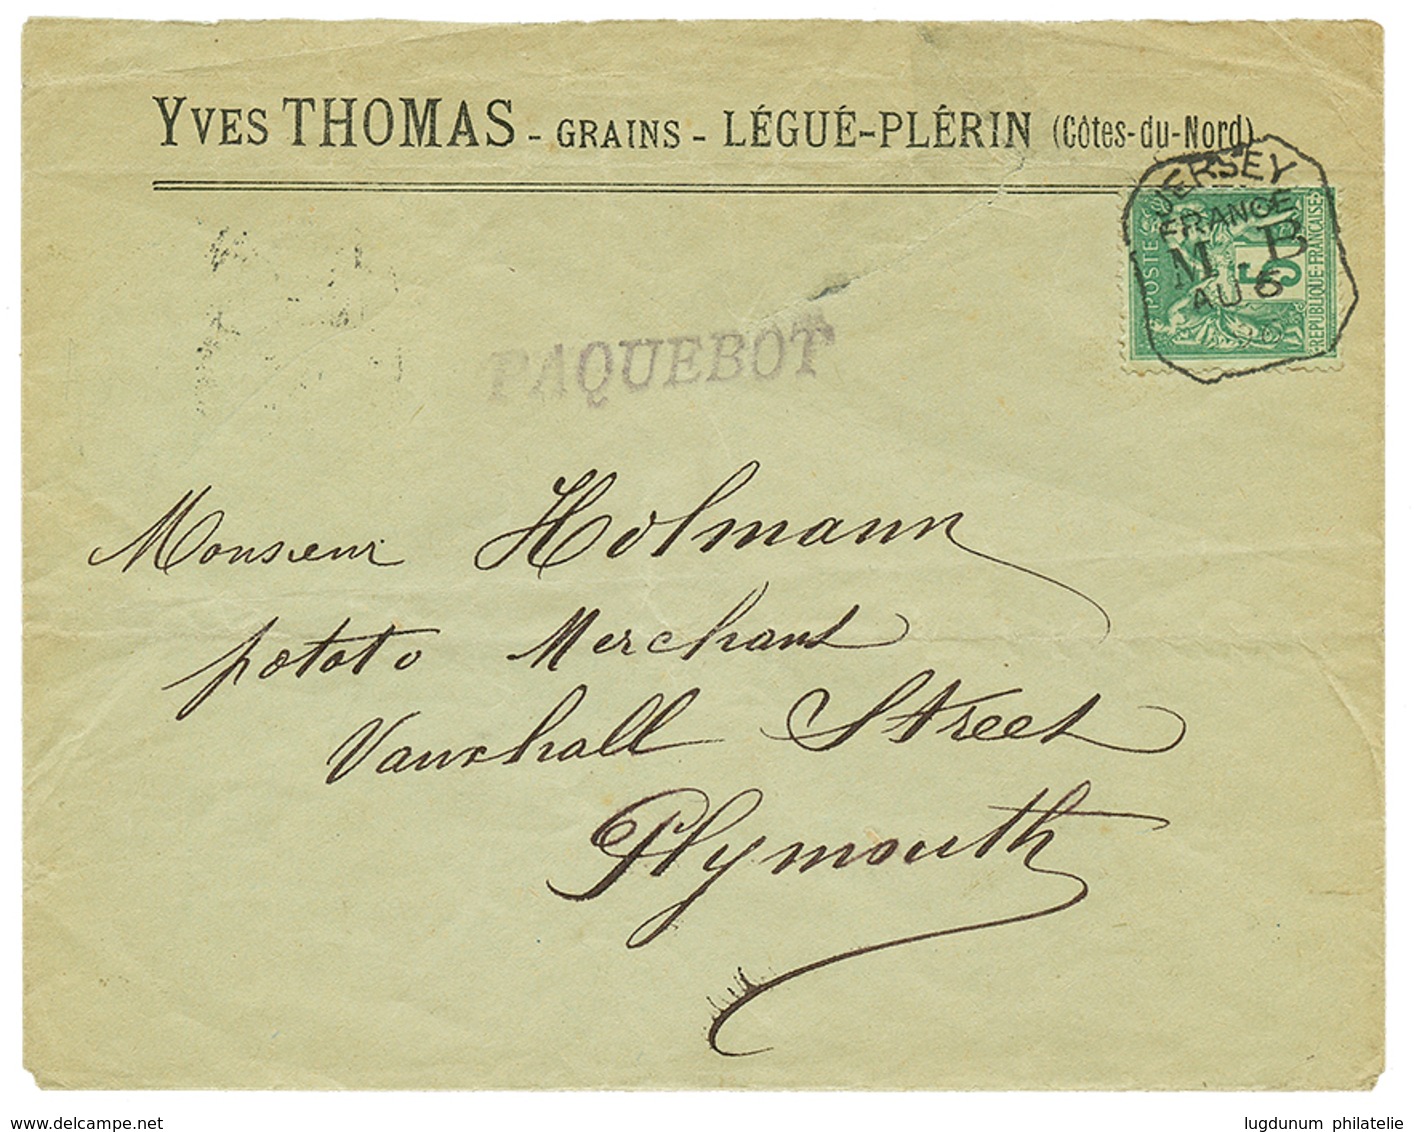 YVES THOMAS - GRAINS - LÉGUÉ-PLÉRIN (Côtes-du-Nord)
JERSEY
FRANCE
M. B
AU 6
POSTE
5
REPUBLIQUE·FRANCAISE
PAQUEBOT
Monsieur Holmann
potato Merchant
Vauxhall Street
Plymouth
www.delcampe.net
lugdunum philatelie